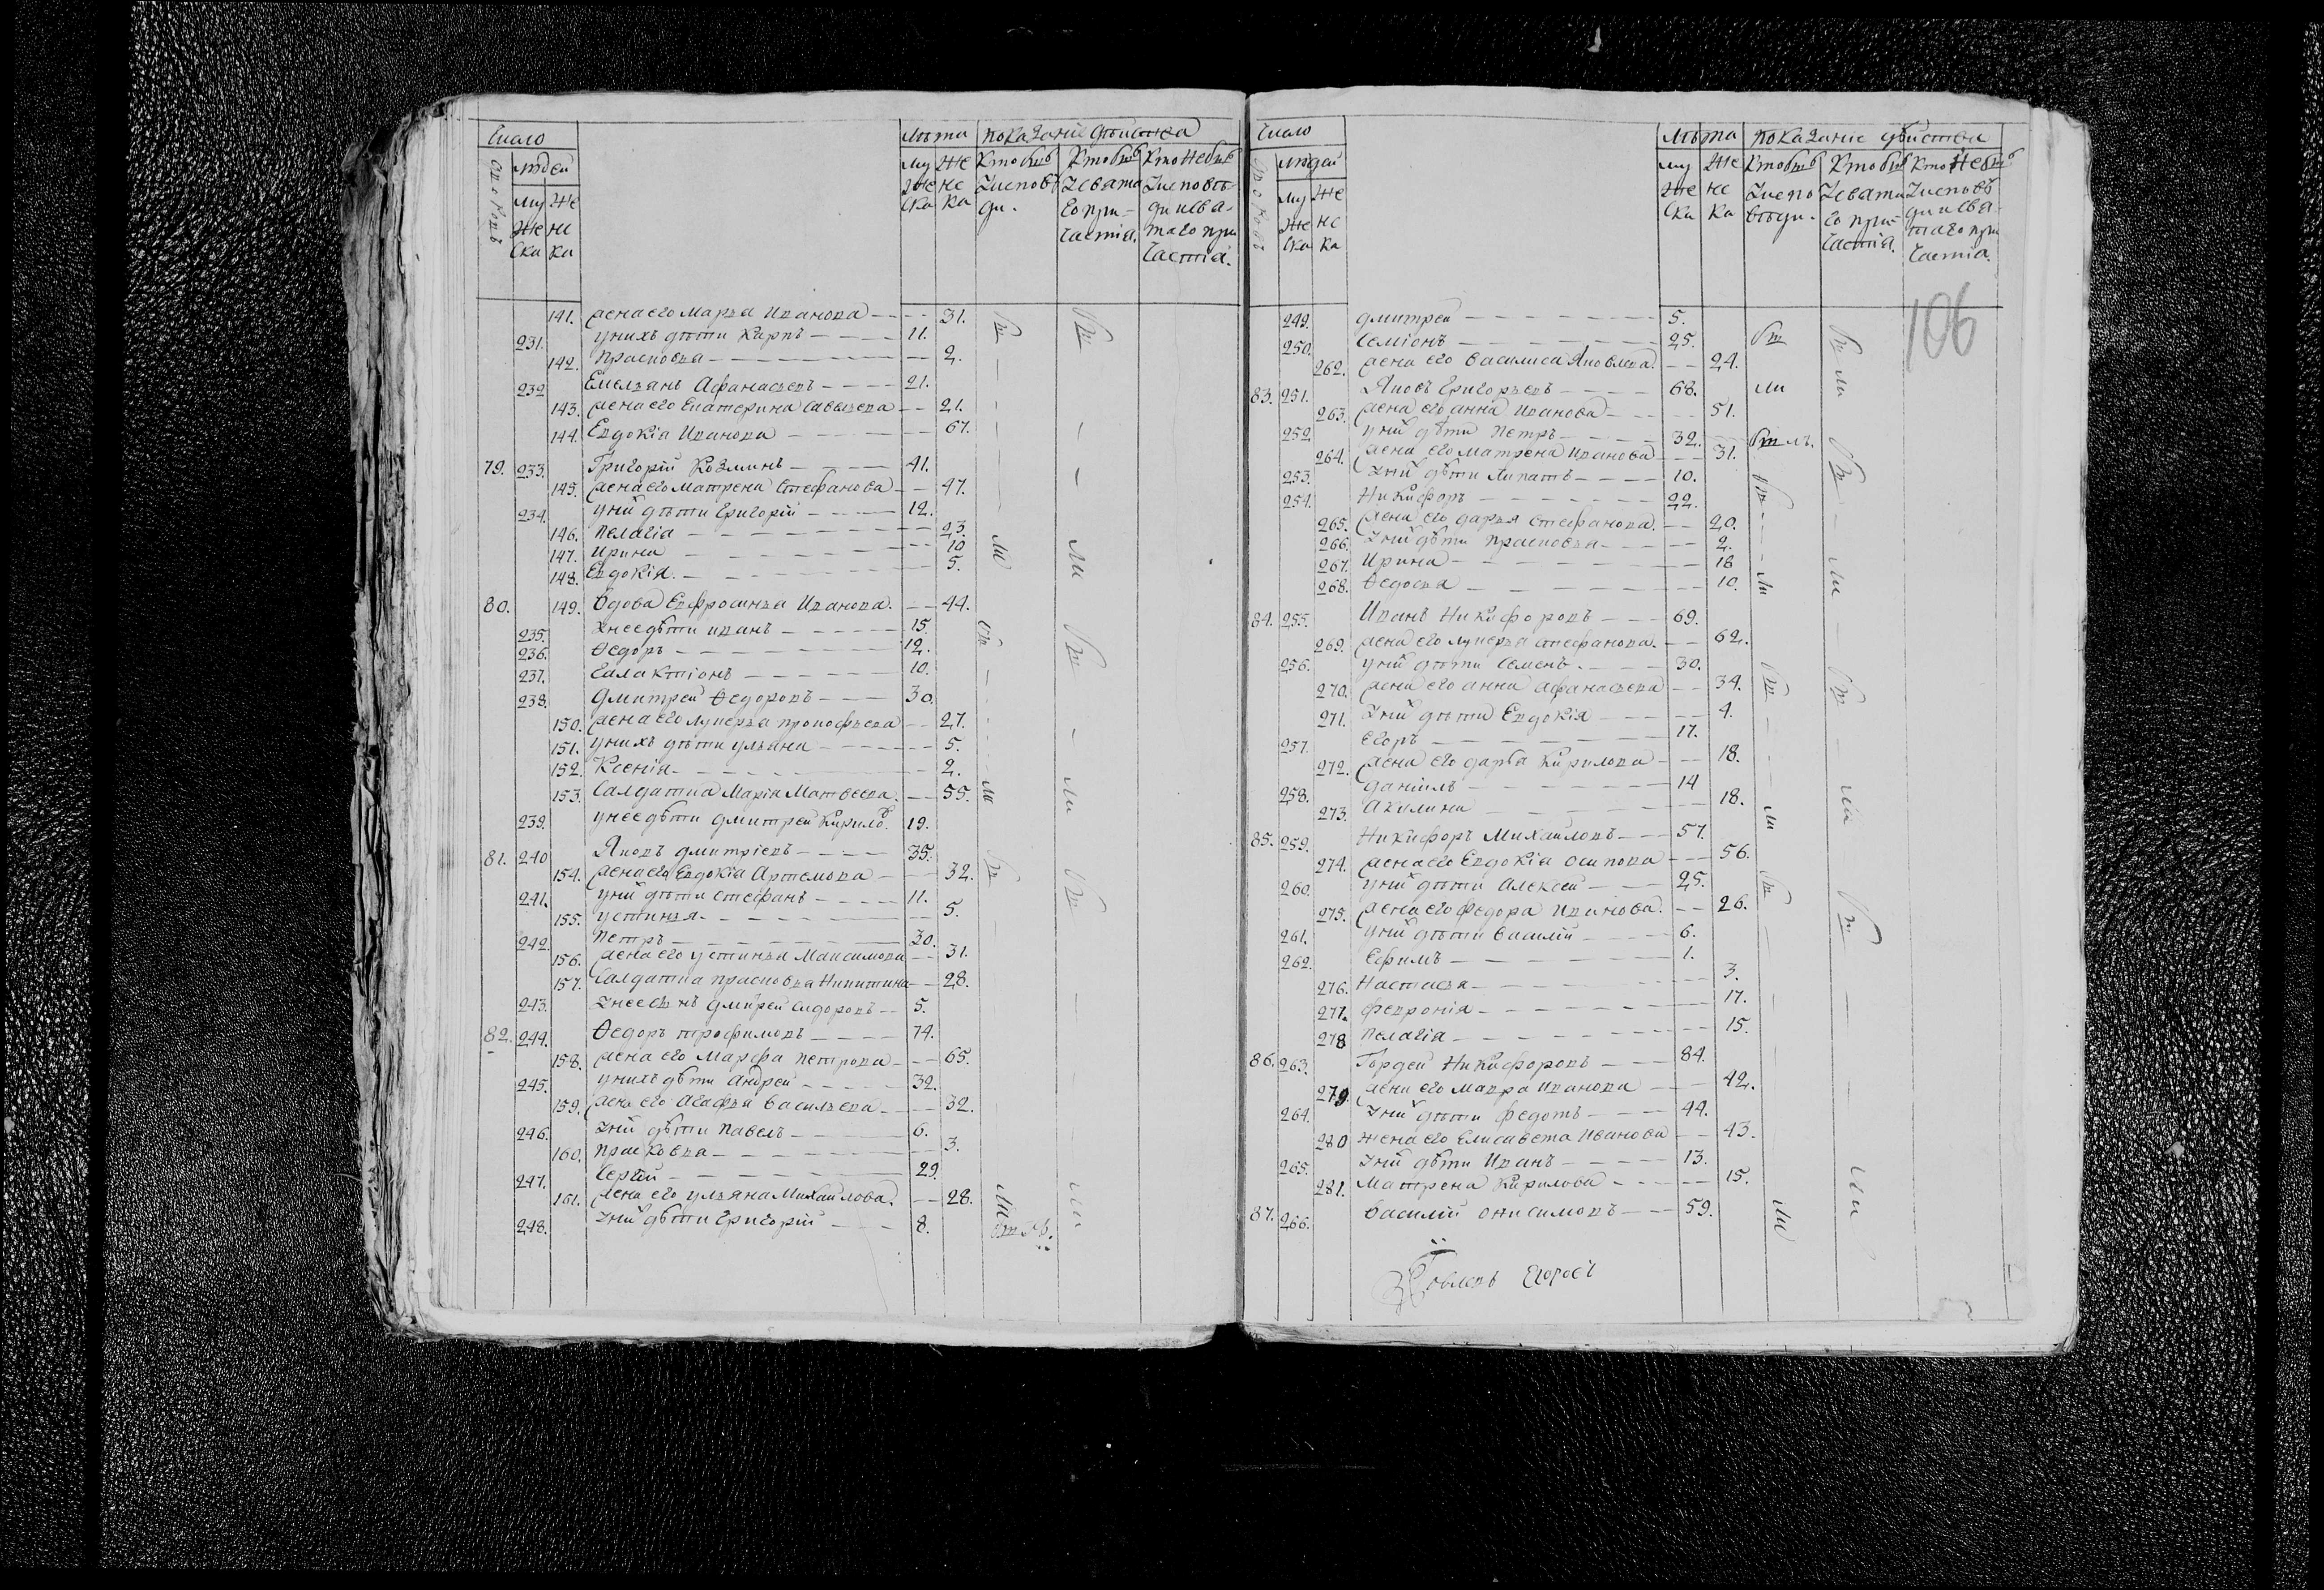 Число
Дворовъ
людей
Му
же
ска
Же
нс
ка
Лѣта
Му
же
ска
Же
нс
ка
показаніе дѣйства
Кто былъ
у исповѣ
ди.
Кто былъ
у свята
го при-
частія.
Кто не былъ
у исповѣ-
ди и свя-
таго при
частія.
141. жена его Марья Иванова 31.
231. у нихъ дѣти Карпъ 11.
142. Прасковья 2.
232 Емельянъ Афанасьевъ 21.
143. жена его Екатерина Савельева 21.
144. Евдокія Иванова 67.
79. 233. Григорій Козминъ 41.
145. жена его Матрена Стефанова 47.
234. у ний дѣти Григорій 12.
146. Пелагія 23.
147. Ирина 10
148. Евдокія. 5.
80. 149. Вдова Евфросинья Иванова. 44.
235. у нее дѣти иванъ 15.
236. Ѳедоръ 12.
237. Галактіонъ 10.
238. Дмитрей Ѳедоровъ 30.
150. жена его Лукерья прокофьева 27.
151. у нихъ дѣти ульяна 5.
152. Ксенія 2.
153. Салдатка Марія Матвеева. 55.
239. у нее дѣти Дмитрей Кирило 19.
81. 240 Яковъ Дмитріевъ 35.
154. жена его Евдокія Артемова 32.
241. у ний дѣти Стефанъ 11.
155. устинья 5.
242. Петръ 30.
156. жена его устинья Максимова 31.
157. Салдатка прасковья Никитина 28.
243. у нее сынъ Дмитрей Сидоровъ 5.
82. 244. Ѳедоръ трофимовъ 74.
158. жена его Марфа петрова 65.
245. у нихъ дѣти Андрей 32.
159. жена его Агафья Васильева 32.
246. у ний дѣти Павелъ 6.
160. прасковья 3.
247. Сергій 29.
161. жена его ульяна Михайлова. 28.
248. у ний дѣти Григорій 8.
Число
Дворовъ
людей
Му
же
ска
Же
нс
ка
Лѣта
Му
же
ска
Же
нс
ка
показаніе дѣйства
Кто былъ
у испо
вѣди.
Кто былъ
у святи
го при-
частія.
Кто не былъ
у исповѣ
ди и свя-
таго при
частія.
106
249. Дмитрей 5.
250. Семіонъ 25.
262. жена его Василиса Яковлева. 24.
83. 251. Яковъ Григорьевъ 68.
263. жена его анна иванова 51.
252. у ний дѣти петръ 32.
264. жена его Матрена Иванова 31.
253. у ний дѣти Липатъ 10.
254. Никифоръ 22.
265. жена его дарья Стефанова. 20.
266. у ний дѣти прасковья 2.
267. Ирина 18
268. Ѳедосья 10.
84. 255. Иванъ Никифоровъ 69.
269. жена его лукерья стефанова. 62.
256. у ний дѣти Семенъ. 30.
270. жена его анна афанасьева 34.
271. у ний дѣти Евдокія 4.
257. Егоръ 17.
272. жена его дарья Кирилова 18.
258. даніилъ 14
273. Акилина 18.
85. 259. Никифоръ Михайловъ 57.
274. жена его Евдокія осипова 56.
260. у ний дѣти Алексей 25.
275. жена его федора Иванова. 26.
261. у ний дѣти Василій 6.
262. Ефимъ 1.
276. Настасья 3.
277. февронія 17.
278 Пелагія 15.
86. 263. Гордей Никифоровъ 84.
279. жена его Мавра Иванова 42.
264. у ний дѣти федотъ 44.
280 жена его Елисавета Иванова 43.
265. у ний дѣти Иванъ 13.
281. Матрена Кирилова 15.
87. 266. Василій онисимовъ 59.